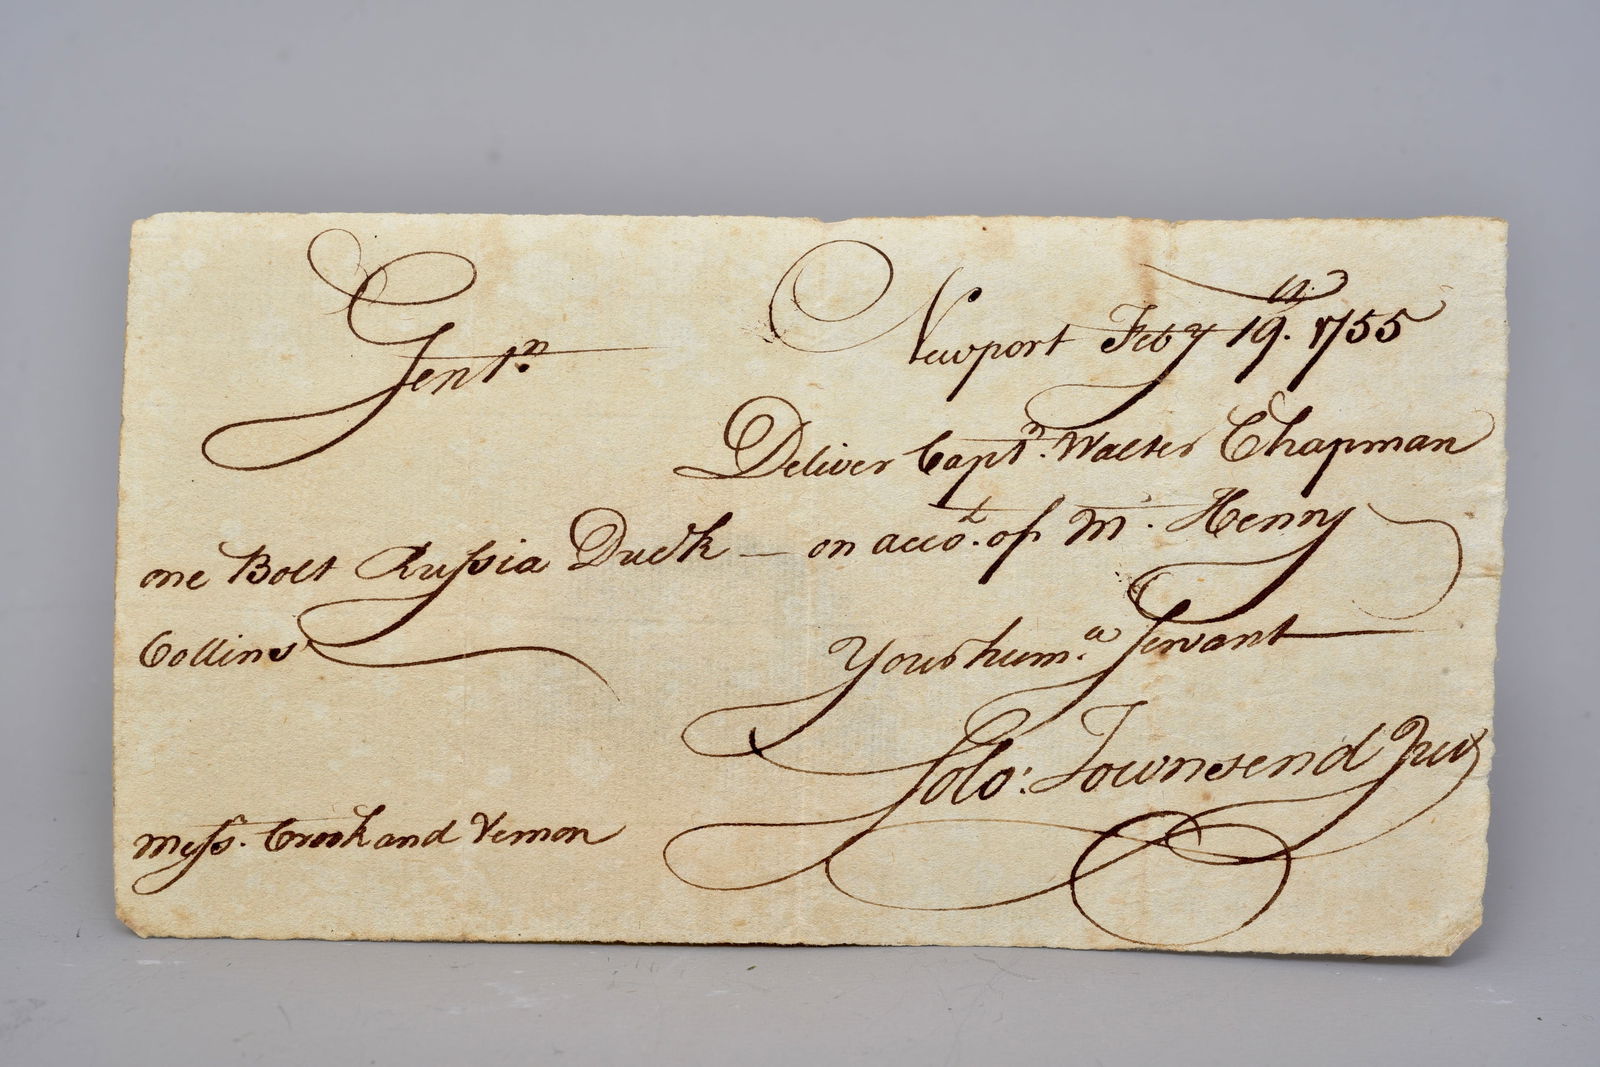 Gentn. Newport Feby 19th. 1755
Deliver Captn. Walter Chapman
one Bolt Russia Duck — on accot. of Mr. Henry
Collins
Your huma. Servant
Solo: Townsend Junr
Messrs. Crook and Vernon